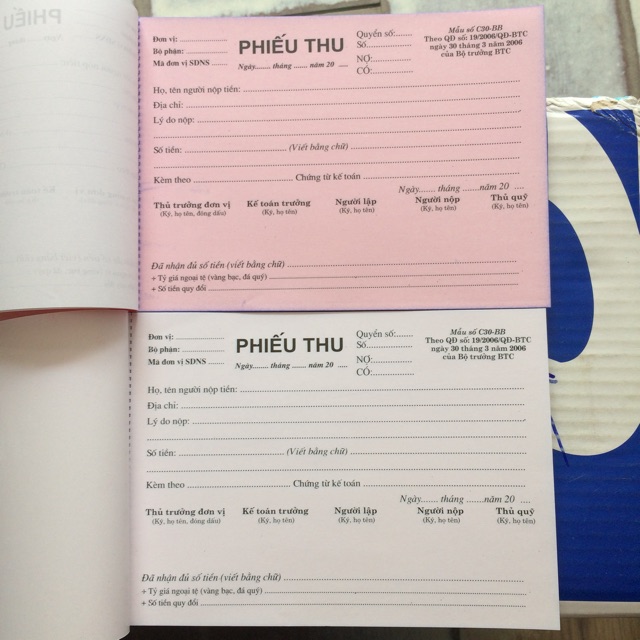 PHIẾU
Đơn vị: ....................
Bộ phận: ..................
Mã đơn vị SDNS .......
PHIẾU THU
Ngày....... tháng ....... năm 20 .....
Quyển số:.......
Số................
NỢ:..............
CÓ:..............
Mẫu số C30-BB
Theo QĐ số: 19/2006/QĐ-BTC
ngày 30 tháng 3 năm 2006
của Bộ trưởng BTC
Họ, tên người nộp tiền: ....................
Địa chỉ: ....................
Lý do nộp: ....................
....................
Số tiền: .................... (Viết bằng chữ) ....................
....................
Kèm theo .................... Chứng từ kế toán ....................
Ngày....... tháng .......năm 20 ....
Thủ trưởng đơn vị Kế toán trưởng Người lập Người nộp Thủ quỹ
(Ký, họ tên, đóng dấu) (Ký, họ tên) (Ký, họ tên) (Ký, họ tên) (Ký, họ tên)
Đã nhận đủ số tiền (viết bằng chữ) ....................
+ Tỷ giá ngoại tệ (vàng bạc, đá quý) ....................
+ Số tiền quy đổi ....................
Đơn vị: ....................
Bộ phận: ..................
Mã đơn vị SDNS .......
PHIẾU THU
Ngày....... tháng ....... năm 20 .....
Quyển số:.......
Số................
NỢ:..............
CÓ:..............
Mẫu số C30-BB
Theo QĐ số: 19/2006/QĐ-BTC
ngày 30 tháng 3 năm 2006
của Bộ trưởng BTC
Họ, tên người nộp tiền: ....................
Địa chỉ: ....................
Lý do nộp: ....................
....................
Số tiền: .................... (Viết bằng chữ) ....................
....................
Kèm theo .................... Chứng từ kế toán ....................
Ngày....... tháng .......năm 20 ....
Thủ trưởng đơn vị Kế toán trưởng Người lập Người nộp Thủ quỹ
(Ký, họ tên, đóng dấu) (Ký, họ tên) (Ký, họ tên) (Ký, họ tên) (Ký, họ tên)
Đã nhận đủ số tiền (viết bằng chữ) ....................
+ Tỷ giá ngoại tệ (vàng bạc, đá quý) ....................
+ Số tiền quy đổi ....................